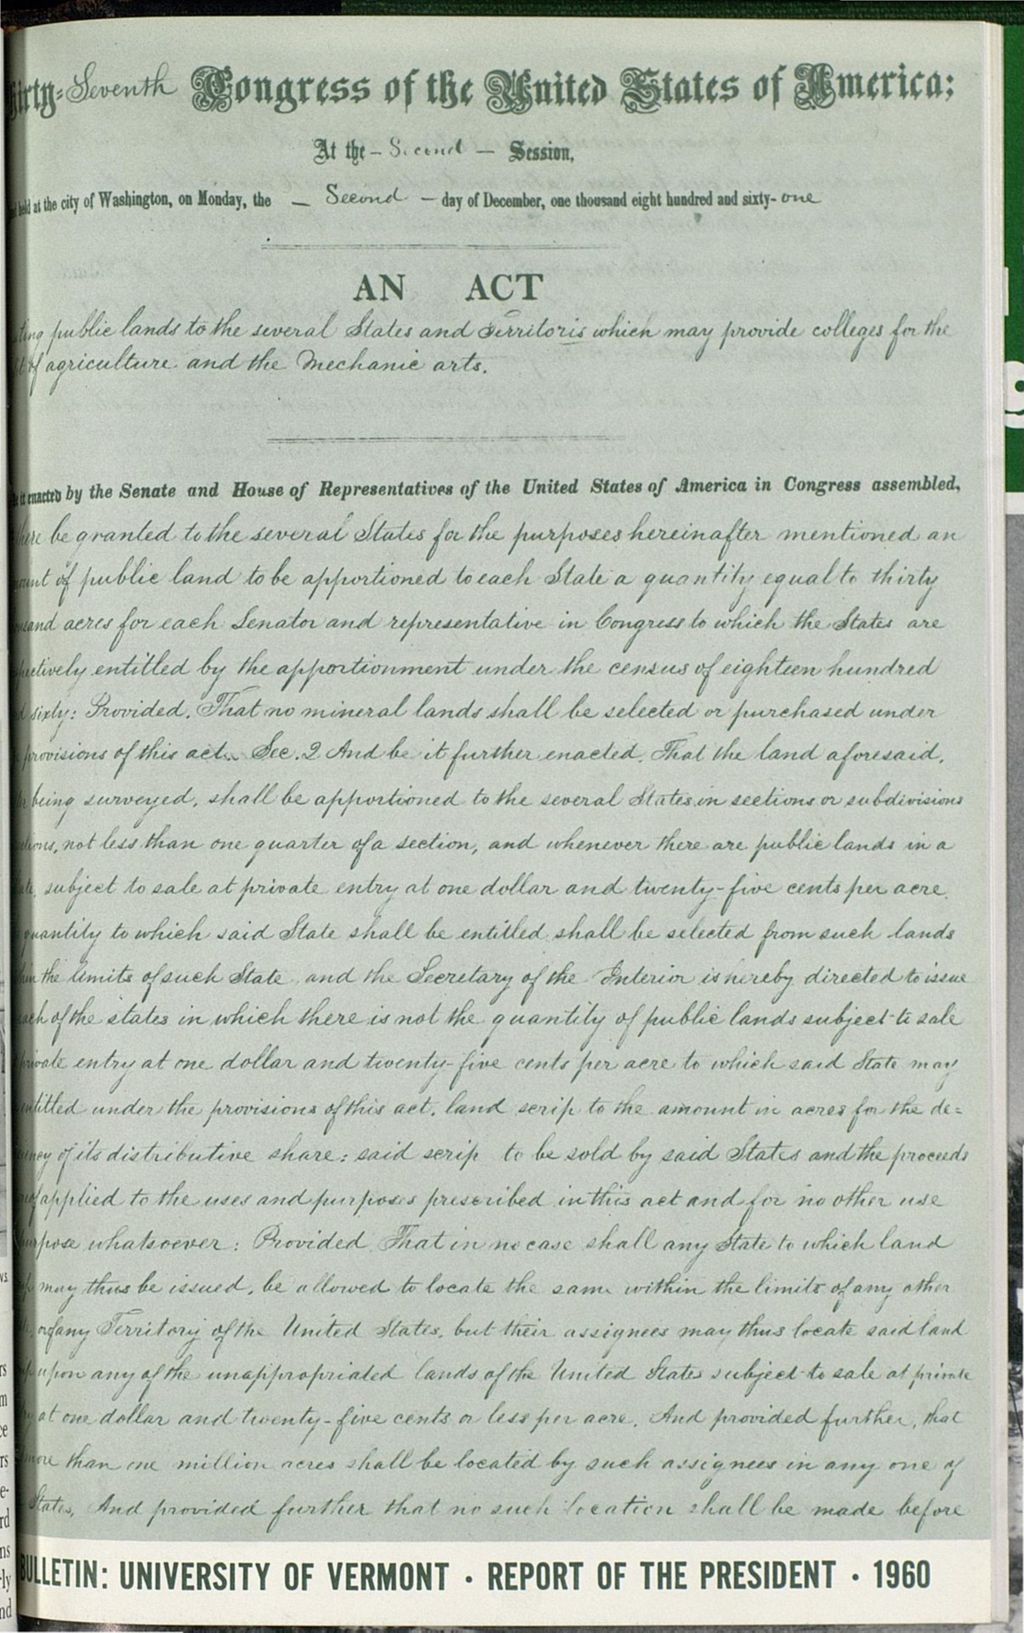 irty-Seventh Congress of the United States of America;
At the - Second - Session,
held at the city of Washington, on Monday, the - Second - day of December, one thousand eight hundred and sixty-one
AN ACT
ting public lands to the several States and Territoris which may provide colleges for the
of agriculture and the Mechanic arts.
it enacted by the Senate and House of Representatives of the United States of America in Congress assembled,
here be granted to the several States for the purposes hereinafter mentioned an
ount of public land to be apportioned to each State a quantity equal to thirty
usand acres for each Senator and representative in Congress to which the States are
pectively entitled by the apportionment under the census of eighteen hundred
d sixty: Provided, That no mineral lands shall be selected or purchased under
provisions of this act. Sec. 2 And be it further enacted. That the land aforesaid,
being surveyed, shall be apportioned to the several States in sections or subdivisions
ctions, not less than one quarter of a section, and whenever there are public lands in a
ate, subject to sale at private entry at one dollar and twenty-five cents per acre,
quantity to which said State shall be entitled shall be selected from such lands
hin the limits of such State, and the Secretary of the Interior is hereby directed to issue
each of the states in which there is not the quantity of public lands subject to sale
private entry at one dollar and twenty-five cents per acre to which said State may
entitled under the provisions of this act, land scrip to the amount in acres for the de=
iency of its distributive share: said scrip to be sold by said States and the proceeds
reof applied to the uses and purposes prescribed in this act and for no other use
purpose whatsoever: Provided, That in no case shall any State to which land
ip may thus be issued, be allowed to locate the same within the limits of any other
te, or of any Territory of the United States, but their assignees may thus locate said land
ip upon any of the unappropriated lands of the United States subject to sale at private
ry at one dollar and twenty-five cents or less per acre. And provided further, that
more than one million acres shall be located by such assignees in any one of
States, And provided further that no such location shall be made before
BULLETIN: UNIVERSITY OF VERMONT • REPORT OF THE PRESIDENT • 1960